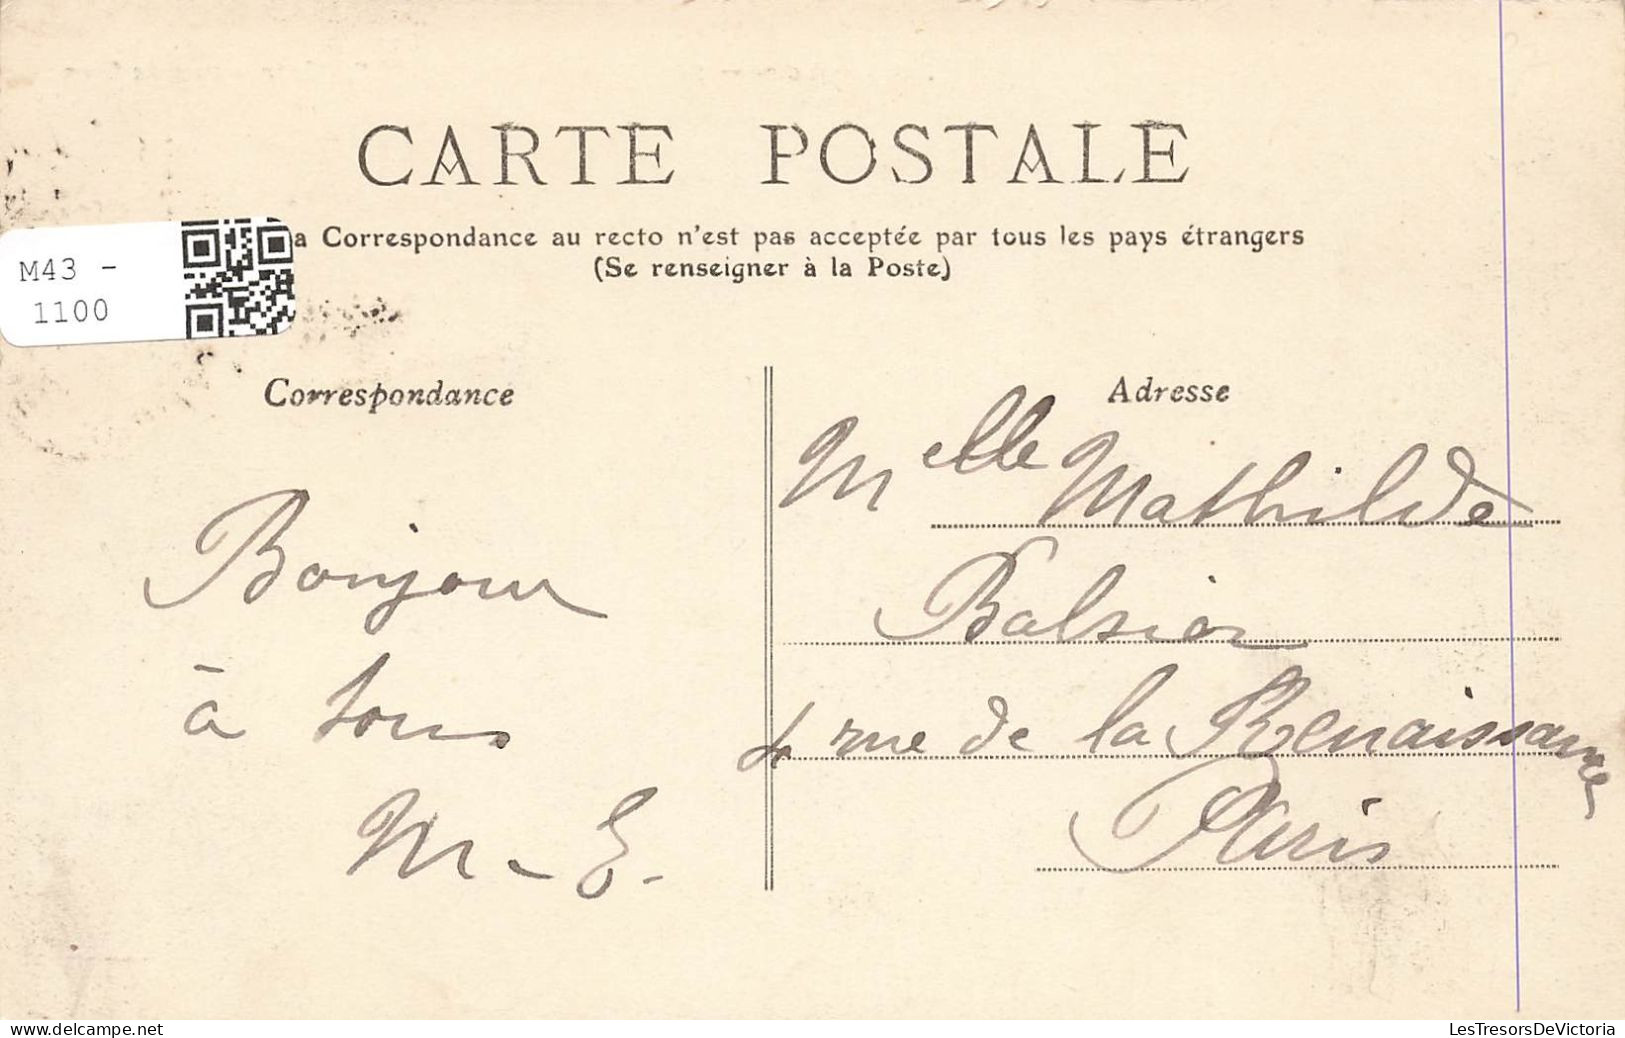 CARTE POSTALE
a Correspondance au recto n'est pas acceptée par tous les pays étrangers
(Se renseigner à la Poste)
M43 -
1100
Correspondance
Bonjour
à tous
M-E.
Adresse
Melle Mathilde
4 rue de la Renaissance
Paris
delcampe.net
LesTresorsDeVictoria